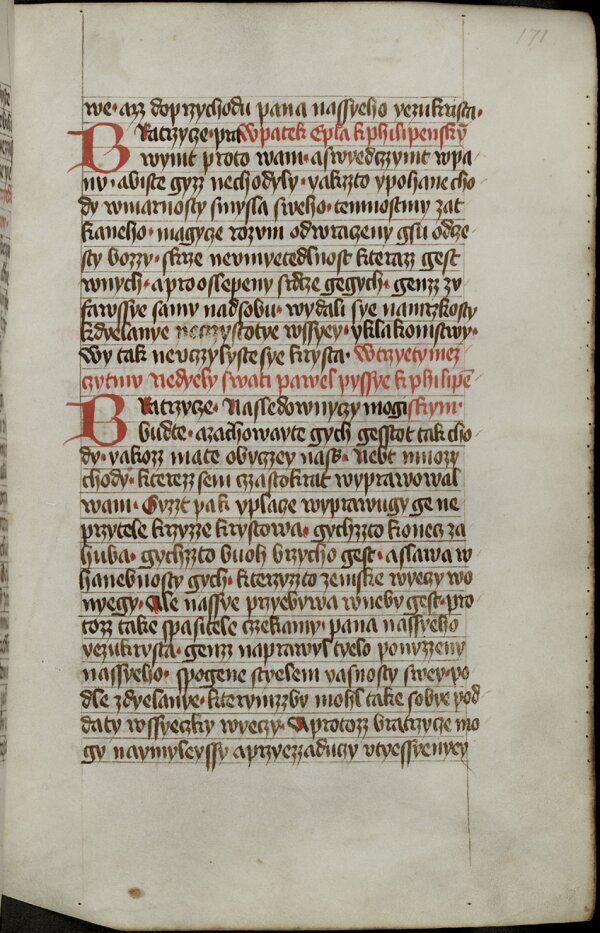 171
we· arz doprzychodu pana nassyeho yezukrista·
Bratrzyce· pra Wpatek Epla kphilipensky
wymt proto wam· aswyedczymt wpa
nu· abiste gyzz nechodyly· yakzto ypohane cho
dy wmarnosty smysla sweho· temnostmy zat
kaneho· magyce rozum odwraczeny gsu odcze
sty bozzy· skrze neumyetedlnost kteraz gest
wnych· aproo slepeny srdcze gegych· genzz zu
fawssye samy nadsobu· wydali sye namrzkosty
kdyelanye neczystotye wssyey· yklakomstwy·
Wy tak neuczylyste sye krysta· Wtrzyetymez
czytmu Nedyely swati pawel pyssye kphilipe
Bratrzyce· Nasledownyczy mogi skym·
budte· azachowayte gych gesstot tak cho
dy· yakozz mate obyczzey nass· Nebt mnozy
chody· kterezz sem czastokrat wyprawowal
wam· Gyzzt pak yplacze wyprawugy ge ne
przytele krzyzze krystowa· gychzzto konecz za
huba· gychzzto buoh brzycho gest· aslawa w
hanebnosty gych· kterzyzzto zemske wyeczy wo
nyegy· Ale nassye przyebywa wneby gest· pro
tozz take spasitele czekamy· pana nassyeho
yezukrysta· genzz naprawyl tyelo ponyzzeny
nassyeho· spogene styelem yasnosty swey· po
dle zdyelanye· kterymzzby mohl take sobye pod
daty wssyeczky wyeczy· Aprotozz bratrzyce mo
gy naymyleyssy aprzyezzaduczy utyessyenyey